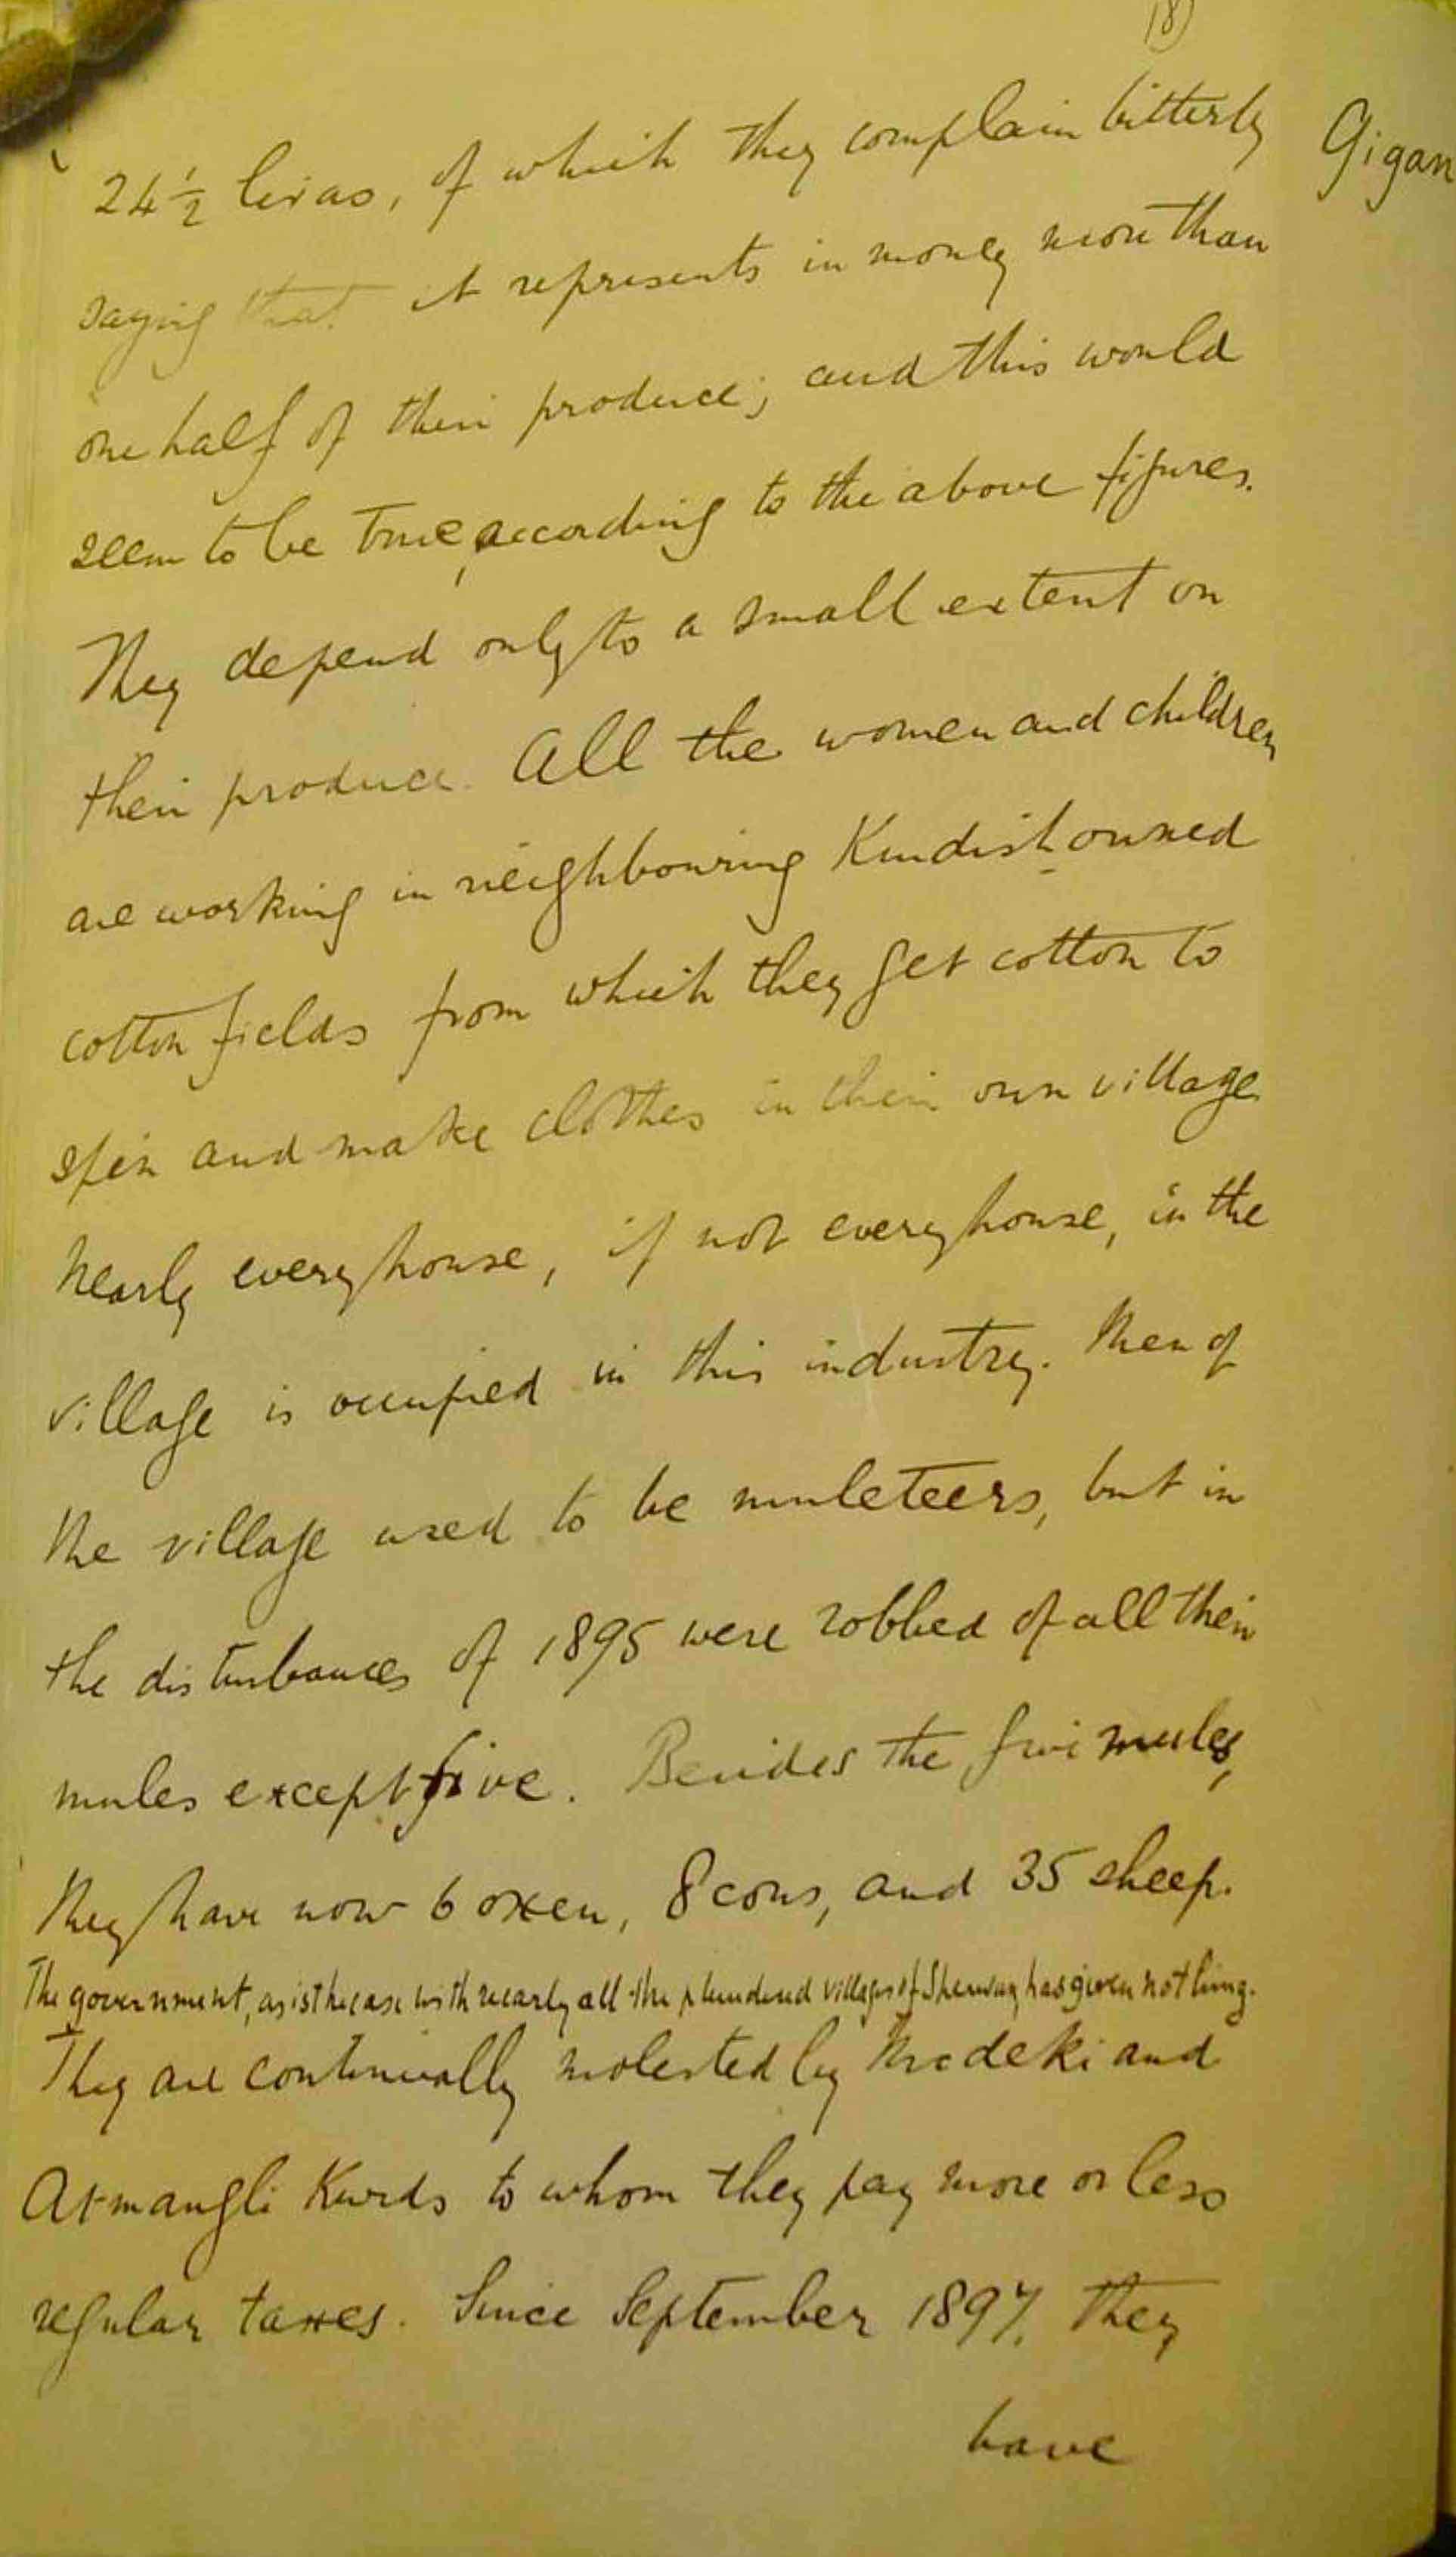 (8)
Gigan
24½ liras, of which they complain bitterly
saying that it represents in money more than
one half of their produce; and this would
seem to be true, according to the above figures.
They depend only to a small extent on
their produce. All the women and children
are working in neighbouring Kurdish owned
cotton fields from which they get cotton to
spin and make clothes in their own village
nearly every house, if not every house, in the
village is occupied in this industry. Men of
the village used to be muleteers, but in
the disturbances of 1895 were robbed of all their
mules except five. Besides the five mules,
they have now 6 oxen, 8 cows, and 35 sheep.
The government, as is the case with nearly all the plundered villages of Sherwan, has given nothing.
They are continually molested by Modeki and
Atmangli Kurds to whom they pay more or less
regular taxes. Since September 1897, they
have